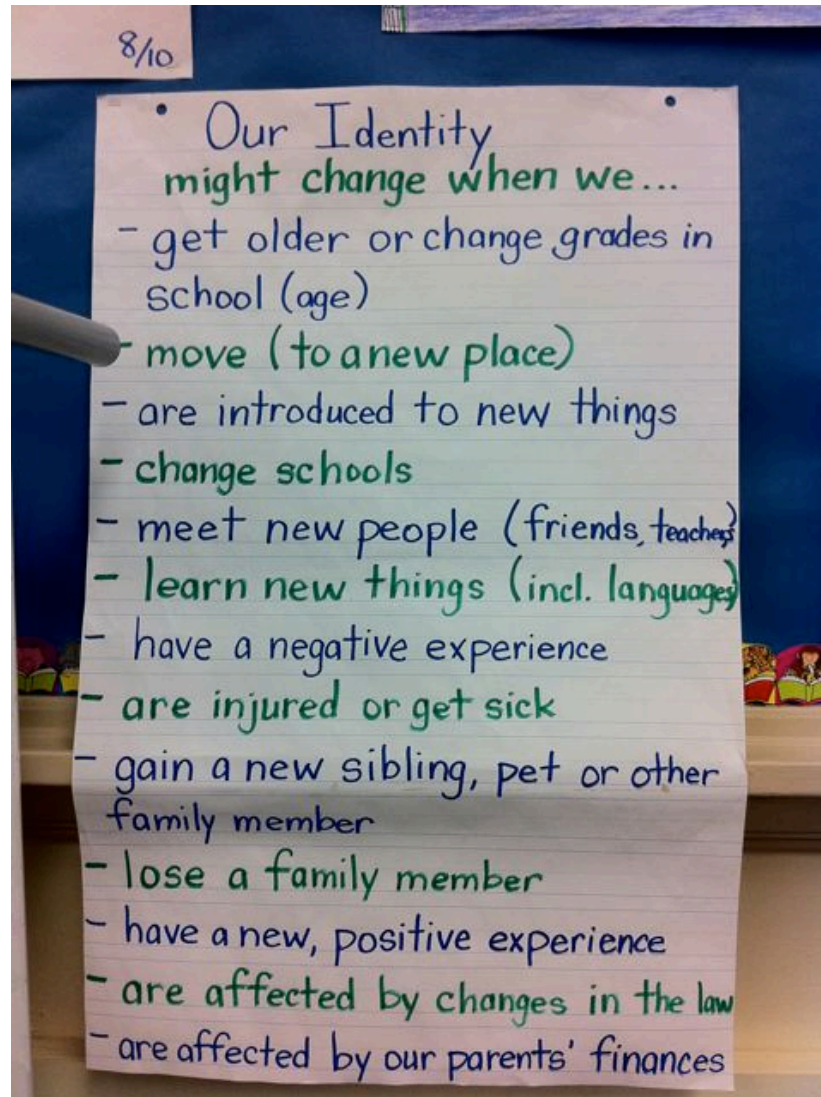 8/10
Our Identity
might change when we...
- get older or change grades in
school (age)
- move (to a new place)
- are introduced to new things
- change schools
- meet new people (friends, teachers)
- learn new things (incl. languages)
- have a negative experience
- are injured or get sick
- gain a new sibling, pet or other
family member
- lose a family member
- have a new, positive experience
- are affected by changes in the law
- are affected by our parents' finances